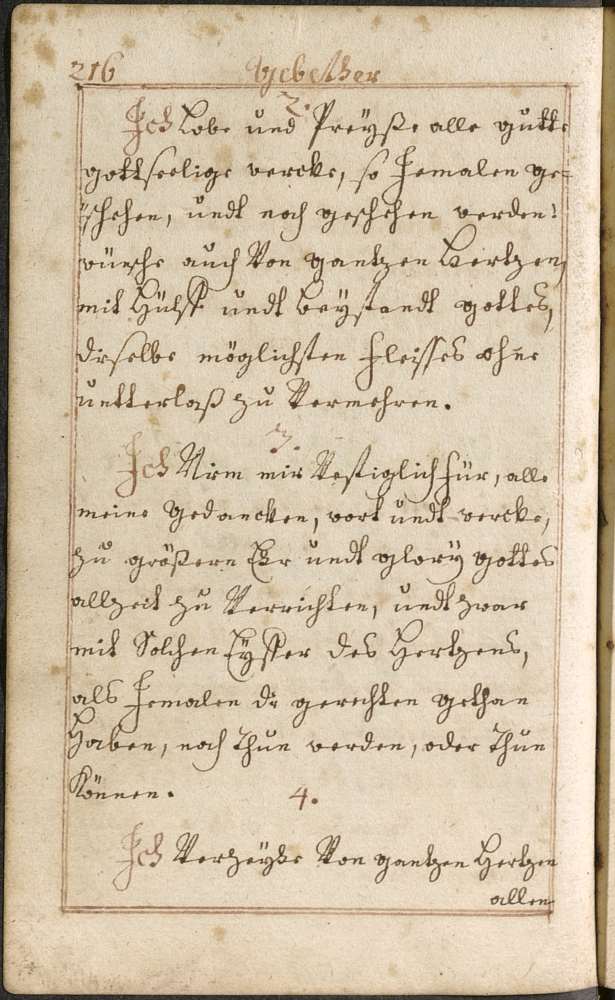 216 Gebether
2.
Ich Lobe und Preyße alle gutte
gottseelige wercke, so Jemalen ge=
schehen, undt noch geschehen werden:
wünsche auch Von gantzen Hertzen,
mit Hülff undt beystandt gottes,
dieselbe möglichsten fleisses ohne
untterlaß zu Vermehren.
3.
Ich Nim mir Vestiglich für, alle
meine gedancken, wort undt wercke,
zu größern Ehr undt glory gottes
allzeit zu Verrichten, undt zwar
mit Solchen Eyffer des Hertzens,
als Jemalen die gerechten gethan
Haben, noch thun werden, oder thun
Können.
4.
Ich Verzeyhe Von gantzen Hertzen
allen